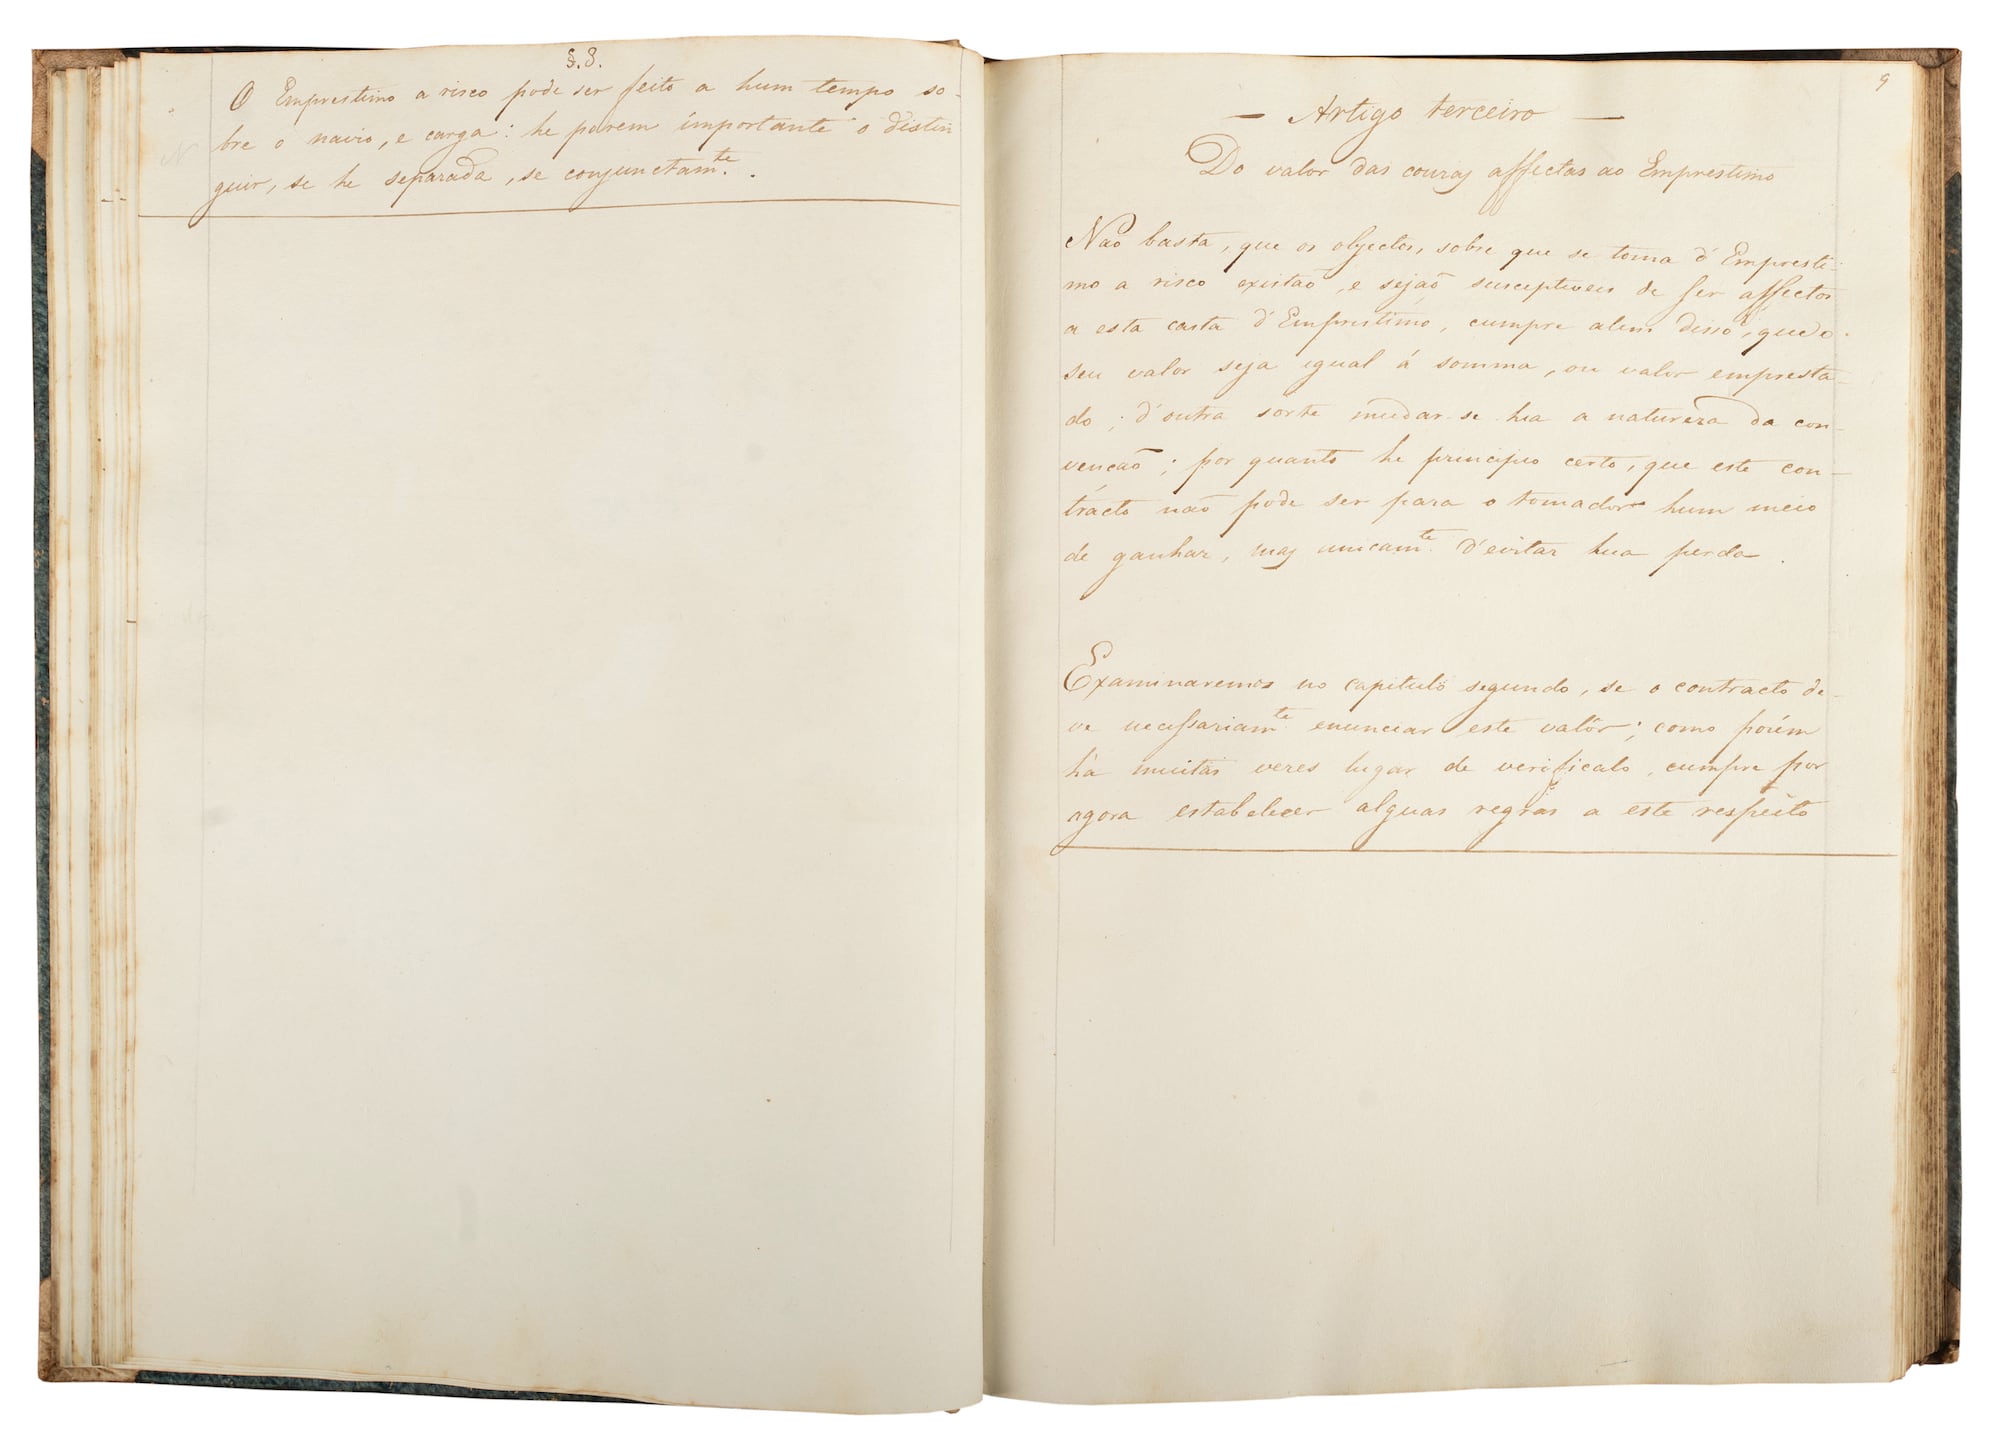 §. 8.
O Emprestimo a risco pode ser feito a hum tempo so-
bre o navio, e carga: he porem importante o distin
guir, se he separada, se conjunctamte.
9
— Artigo terceiro —
Do valor das couzas affectas ao Emprestimo
Não basta, que os objectos, sobre que se toma d'Empresti-
mo a risco existaõ, e sejaõ susceptiveis de ser affectos
a esta casta d'Emprestimo, cumpre alem disso, que o
seu valor seja igual á somma, ou valor empresta-
do; d'outra sorte mudar-se hia a natureza da con-
vençaõ; por quanto he principio certo, que este con-
tracto naõ pode ser para o tomador hum meio
de ganhar, mas unicamte. d'evitar hua perda.
Examinaremos no capitulo segundo, se o contracto de-
ve necessariamte enunciar este valor; como porém
há muitas vezes lugar de verificalo, cumpre por
agora estabelecer alguas regras a este respeito